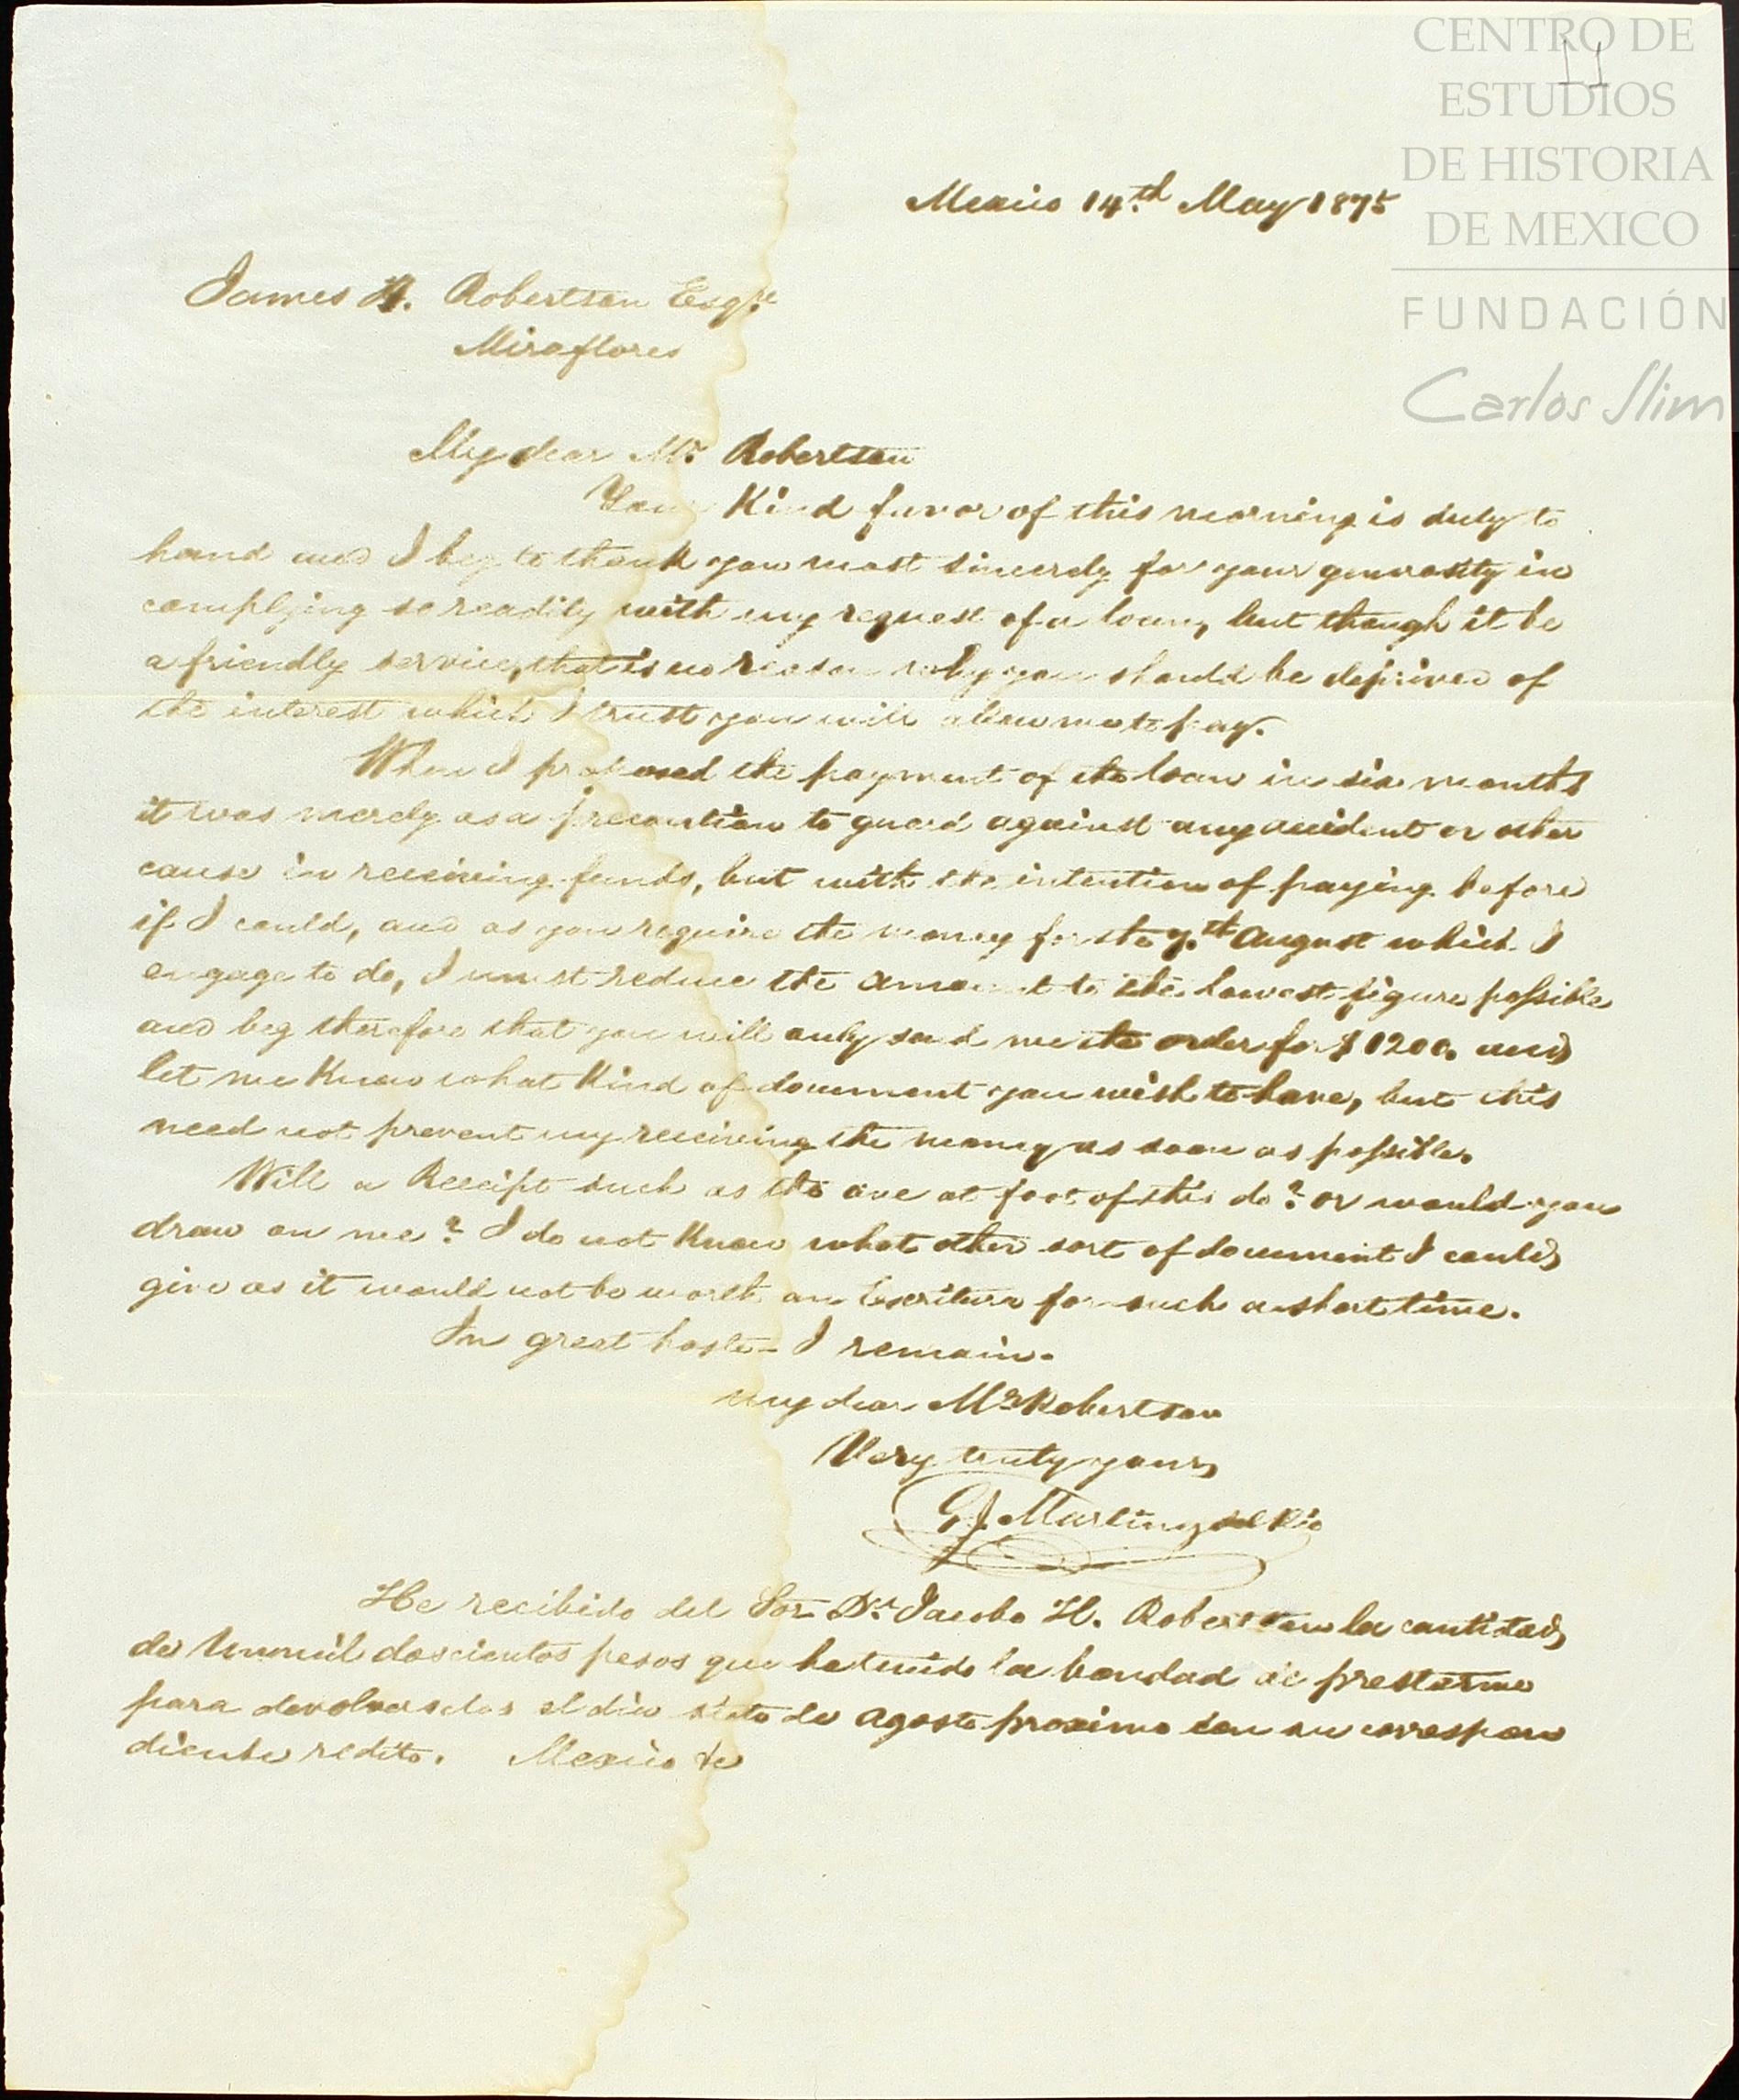 CENTRO DE
ESTUDIOS
DE HISTORIA
DE MEXICO
FUNDACIÓN
Carlos Slim
11
Mexico 14th May 1875
James H. Robertson Esqre
Miraflores
My dear Mr Robertson
Your Kind favor of this morning is duly to
hand and I beg to thank you most sincerely for your generosity in
complying so readily with my request of a loan, but though it be
a friendly service, that is no reason why you should be deprived of
the interest which I trust you will allow me to pay.
When I proposed the payment of the loan in six months
it was merely as a precaution to guard against any accident or other
cause in receiving funds, but with the intention of paying before
if I could, and as you require the money for the 7.th August which I
engage to do, I must reduce the amount to the lowest figure possible
and beg therefore that you will only send me the order for $1200. and
let me Know what Kind of document you wish to have, but this
need not prevent my receiving the money as soon as possible.
Will a Receipt such as the one at foot of this do? or would you
draw on me? I do not Know what other sort of document I could
give as it would not be worth an Escritura for such a short time.
In great haste - I remain.
my dear Mr Robertson
Very truly yours
G. J. Martinez del Rio
He recibido del Sor Dn Jacobo H. Robertson la cantidad
de Un mil doscientos pesos que ha tenido la bondad de prestarme
para devolverselos el dia siete de Agosto proximo con su correspon
diente redito. Mexico &c